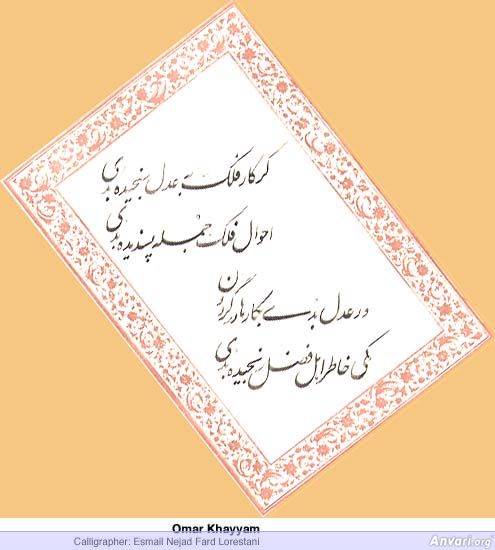 گر کار فلک به عدل سنجیده بدی
احوال فلک جمله پسندیده بدی
ور عدل بدی بکارها در گردون
کی خاطر اهل فضل رنجیده بدی
Omar Khayyam
Calligrapher: Esmail Nejad Fard Lorestani
Anvari.org